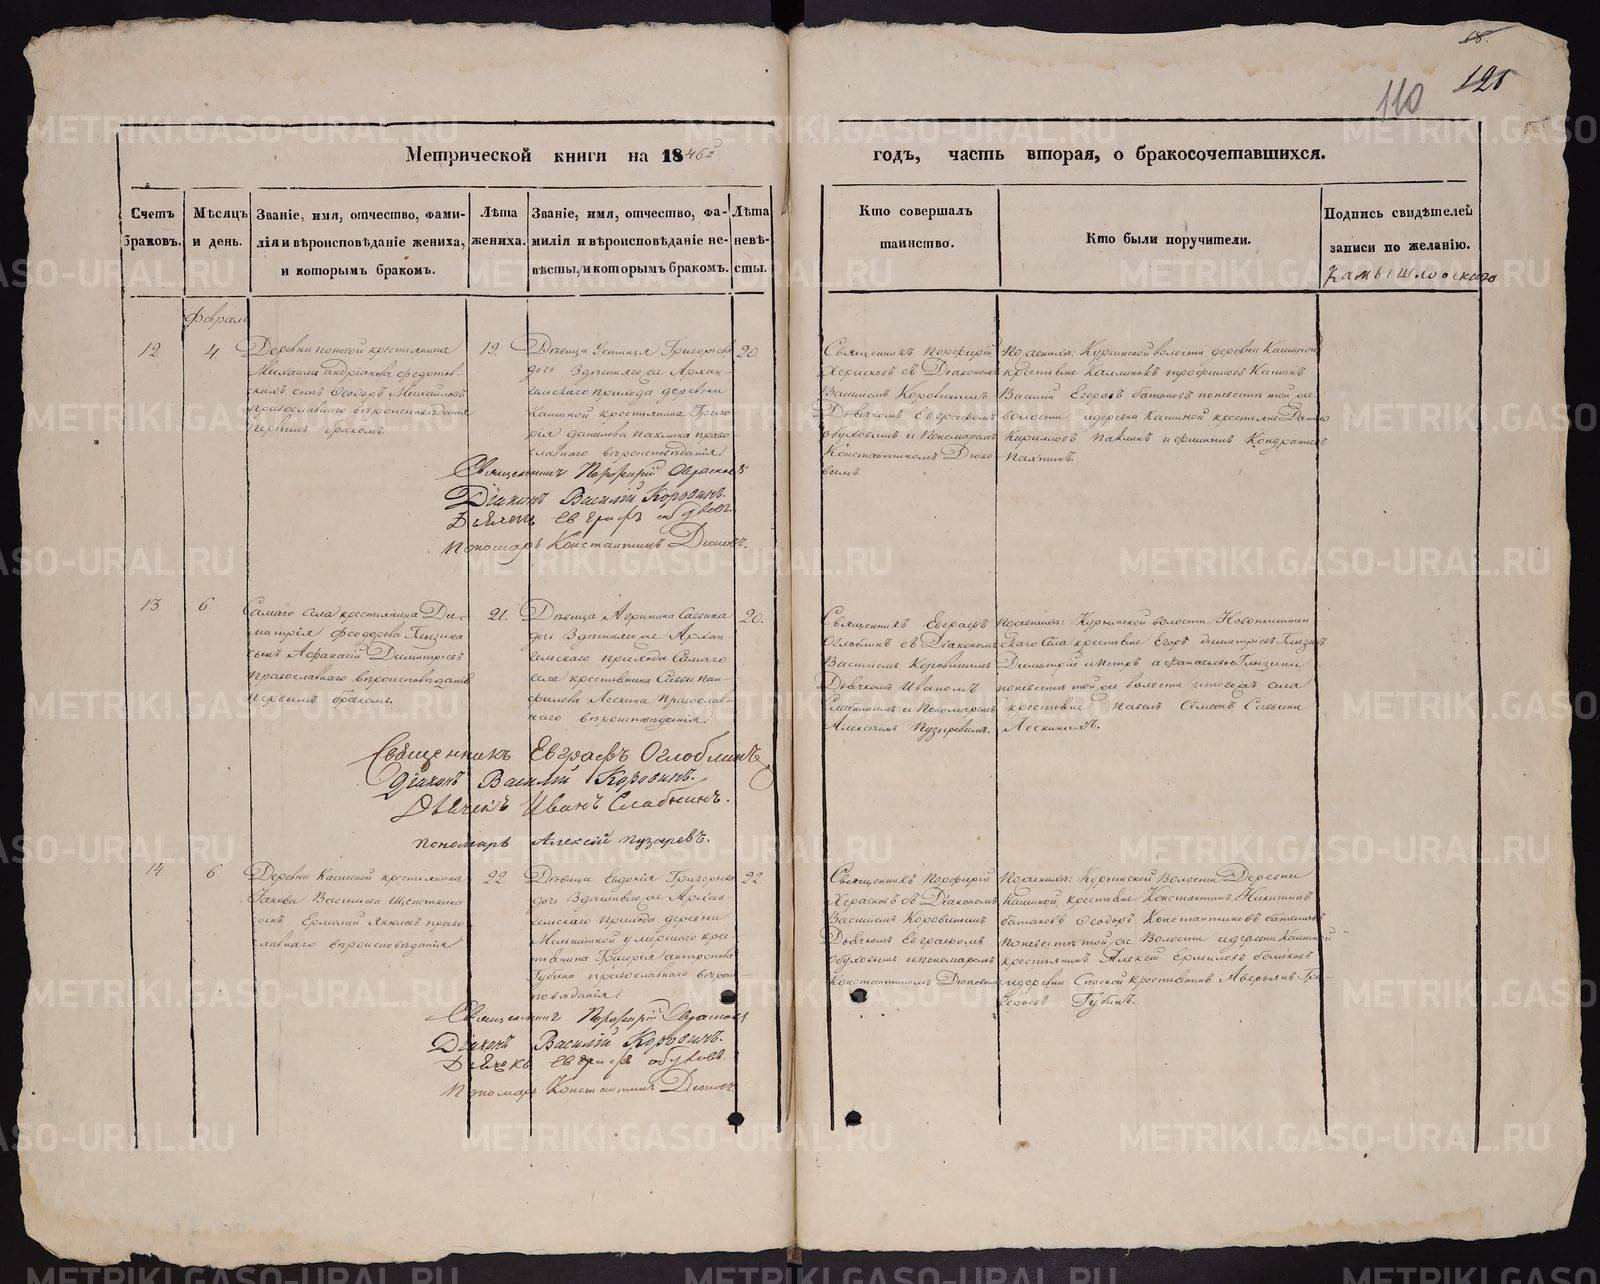 18.
121
110
Метрической книги на 1846й
годъ, часть вторая, о бракосочетавшихся.
Счетъ браковъ.
Мѣсяцъ и день.
Званіе, имя, отчество, фами-
лія и вѣроисповѣданіе жениха,
и которымъ бракомъ.
Лѣта жениха.
Званіе, имя, отчество, фа-
милія и вѣроисповѣданіе не-
вѣсты, и которымъ бракомъ.
Лѣта невѣ-
сты.
Кто совершалъ
таинство.
Кто были поручители.
Подпись свидѣтелей
записи по желанію.
Камышловскаго
Февраль
12.
4
Деревни Поповой крестьянина
Михаила Андріанова Федотов-
скихъ сынъ Ѳеодоръ Михайловъ
православнаго вѣроисповѣданія
первымъ бракомъ.
19.
Дѣвица Устинья Григорьева
дочь Здѣшняго же Архан-
гельскаго прихода деревни
Кашиной крестьянина Григо-
рія Данилова Паклина право-
славнаго вѣроисповѣданія
20
Священникъ Порфирій
Херасковъ съ Діакономъ
Василіемъ Коровинымъ
Дьячкомъ Евграфомъ
Обуховымъ и Пономаремъ
Константиномъ Дюко-
вымъ.
По женихѣ: Курьинской волости деревни Кашиной
крестьяне Калинникъ Трофимовъ Кашинъ
Василій Егоровъ Батаковъ по невѣстѣ той же
волости и деревни Кашиной крестьяне Данило
Кирилловъ Паклинъ и Филиппъ Кондратьевъ
Пахтинъ.
Священникъ Порфирій Херасковъ
Діаконъ Василій Коровинъ.
Дьячекъ Евграфъ Обуховъ
Пономарь Константинъ Дюковъ.
13.
6.
Самаго села крестьянина Ди-
митрія Феодорова Глызина
сынъ Афанасій Димитріевъ
православнаго вѣроисповѣданія
первымъ бракомъ.
21.
Дѣвица Агрипина Савина
дочь Здѣшняго же Архан-
гельскаго прихода Самаго
села крестьянина Савы Пан-
филова Лескина Православ-
наго вѣроисповѣданія.
20.
Священникъ Евграфъ
Оглоблинъ съ Діакономъ
Василіемъ Коровинымъ
Дьячкомъ Иваномъ
Слабнинымъ и Пономаремъ
Алексѣемъ Пузыревымъ.
По женихѣ: Курьинской волости Новопышмин-
скаго Села крестьяне Егоръ Димитріевъ Глызинъ
Димитрій и Петръ Афанасьевы Глызины
по невѣстѣ той же волости и тогожъ села
крестьяне Павелъ Симеонъ Савины
Лескины.
Священникъ Евграфъ Оглоблинъ
Діаконъ Василій Коровинъ.
Дьячекъ Иванъ Слабнинъ.
Пономарь Алексій Пузыревъ.
14.
6.
Деревни Кашиной крестьянина
Іакова Васильева Щепеткина
сынъ Ермолай Яковлевъ право-
славнаго вѣроисповѣданія
22.
Дѣвица Евдокія Григорьева
дочь Здѣшняго же Архан-
гельскаго Прихода деревни
Мельниной умершаго кре-
стьянина Григорія Антропова
Губина православнаго вѣроис-
повѣданія.
22
Священникъ Порфирій
Херасковъ съ Діакономъ
Василіемъ Коровинымъ
Дьячкомъ Евграфомъ
Обуховымъ и пономаремъ
Константиномъ Дюковымъ
По женихѣ: Курьинской Волости Деревни
Кашиной крестьяне Константинъ Никитинъ
Батаковъ Ѳеодоръ Константиновъ Батаковъ
по невѣстѣ той же Волости и деревни Кашиной
крестьянинъ Алексій Ермиловъ Батаковъ
и деревни Спаской крестьянинъ Аверьянъ Гри-
горьевъ Губинъ.
Священникъ Порфирій Херасковъ
Діаконъ Василій Коровинъ.
Дьячекъ Евграфъ Обуховъ.
Пономарь Константинъ Дюковъ
METRIKI.GASO-URAL.RU